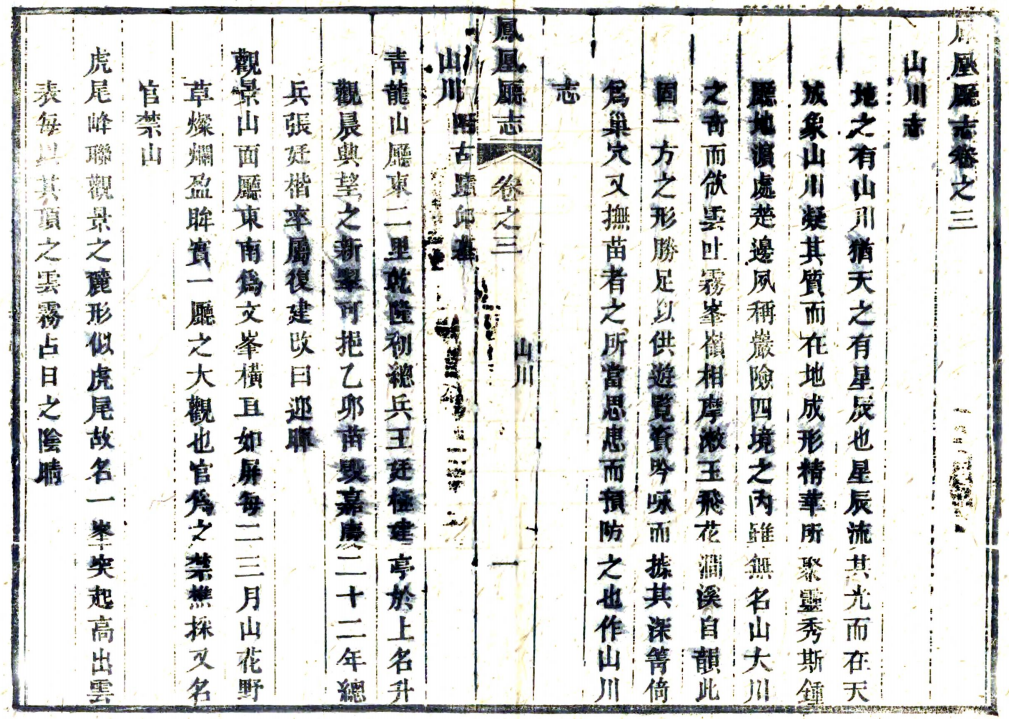 鳳凰廳志卷之三
山川志
地之有山川猶天之有星辰也星辰流其光而在天
成象山川凝其質而在地成形精華所聚靈秀斯鍾
廳地濵處楚邊夙稱巖險四境之內雖無名山大川
之奇而欱雲吐霧峯嶺相摩漱玉飛花澗溪自韻此
固一方之形勝足以供遊覽資吟咏而據其深箐倚
爲巢穴又撫苗者之所當思患而預防之也作山川
志
鳳凰廳志 卷之三 山川 一
山川 附古蹟邱墓
靑龍山廳東二里乾隆初總兵王廷極建亭於上名升
觀晨興望之新翠可挹乙卯苗變嘉慶二十二年總
兵張廷楷率屬復建改曰迎暉
觀景山面廳東南爲文峯橫亘如屏每二三月山花野
草燦爛盈眸實一廳之大觀也官爲之禁樵採又名
官禁山
虎尾峰聯觀景之麓形似虎尾故名一峯突起高出雲
表每以其頂之雲霧占日之陰晴